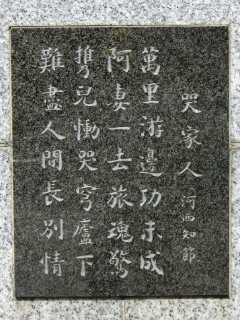 哭家人 河西知節
萬里游邊功未成
阿妻一去旅魂驚
攜兒慟哭穹廬下
難盡人間長別情